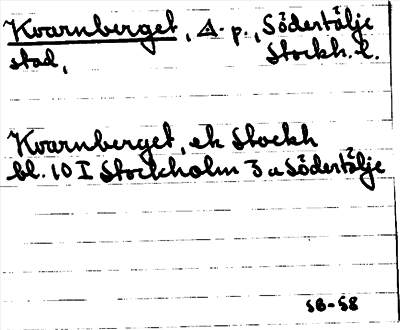 Kvarnberget, A. p., Södertälje
stad, Stockh. l.
Kvarnberget, ek Stockh
bl. 10 I Stockholm 3 a Södertälje
SB-58